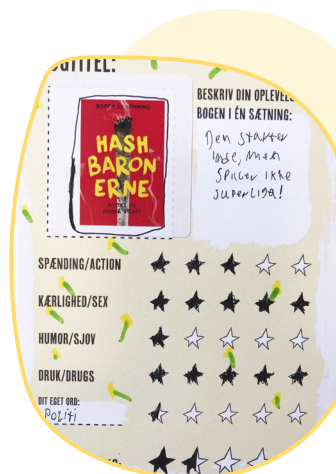 BOGTITEL:
BESKRIV DIN OPLEVELSE
BOGEN I ÉN SÆTNING:
HASH
BARON
ERNE
Den starter
inde, men
spiller ikke
superliga!
SPÆNDING/ACTION
KÆRLIGHED/SEX
HUMOR/SJOV
DRUK/DRUGS
DIT EGET ORD:
Politi